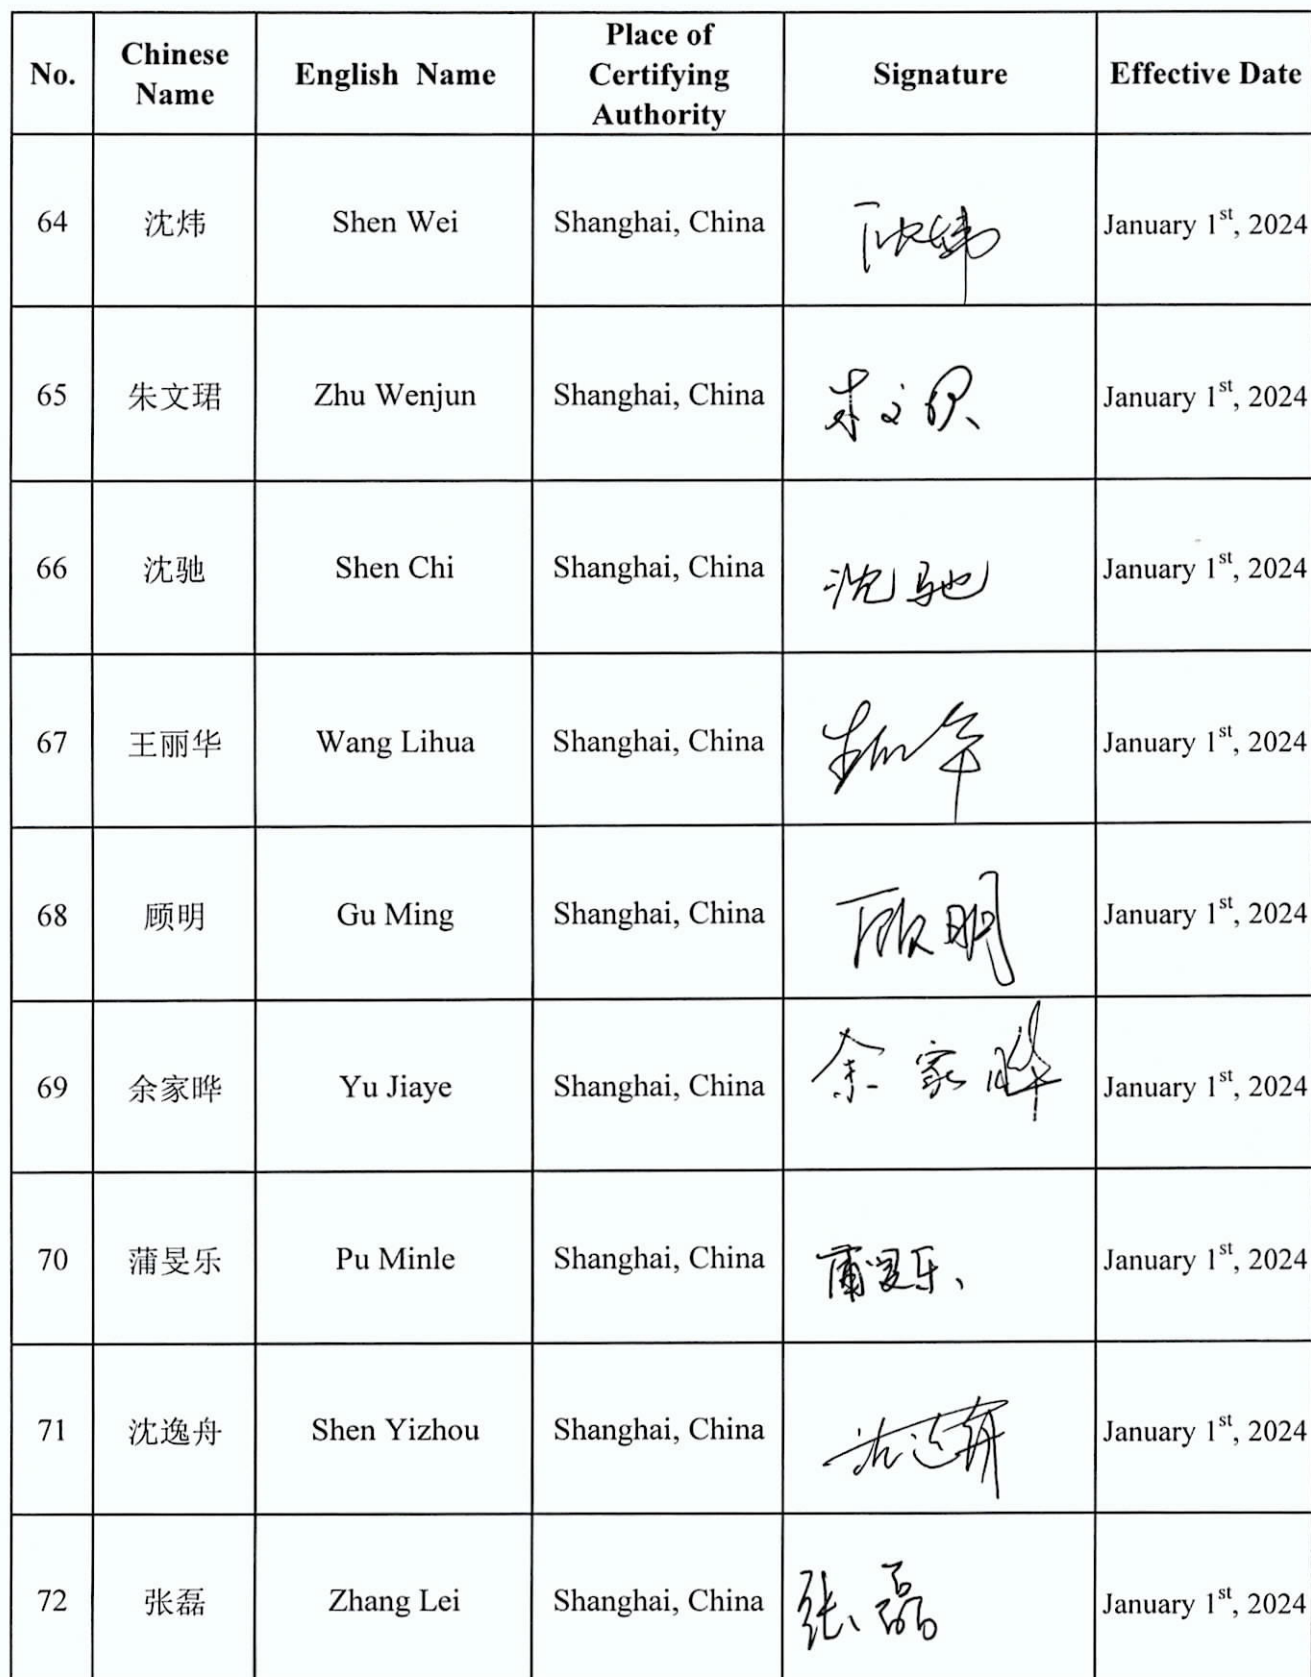 No. Chinese Name English Name Place of Certifying Authority Signature Effective Date
64 沈炜 Shen Wei Shanghai, China January 1st, 2024
65 朱文珺 Zhu Wenjun Shanghai, China 朱文珺 January 1st, 2024
66 沈驰 Shen Chi Shanghai, China 沈驰 January 1st, 2024
67 王丽华 Wang Lihua Shanghai, China January 1st, 2024
68 顾明 Gu Ming Shanghai, China 顾明 January 1st, 2024
69 余家晔 Yu Jiaye Shanghai, China 余家晔 January 1st, 2024
70 蒲旻乐 Pu Minle Shanghai, China 蒲旻乐 January 1st, 2024
71 沈逸舟 Shen Yizhou Shanghai, China January 1st, 2024
72 张磊 Zhang Lei Shanghai, China 张磊 January 1st, 2024